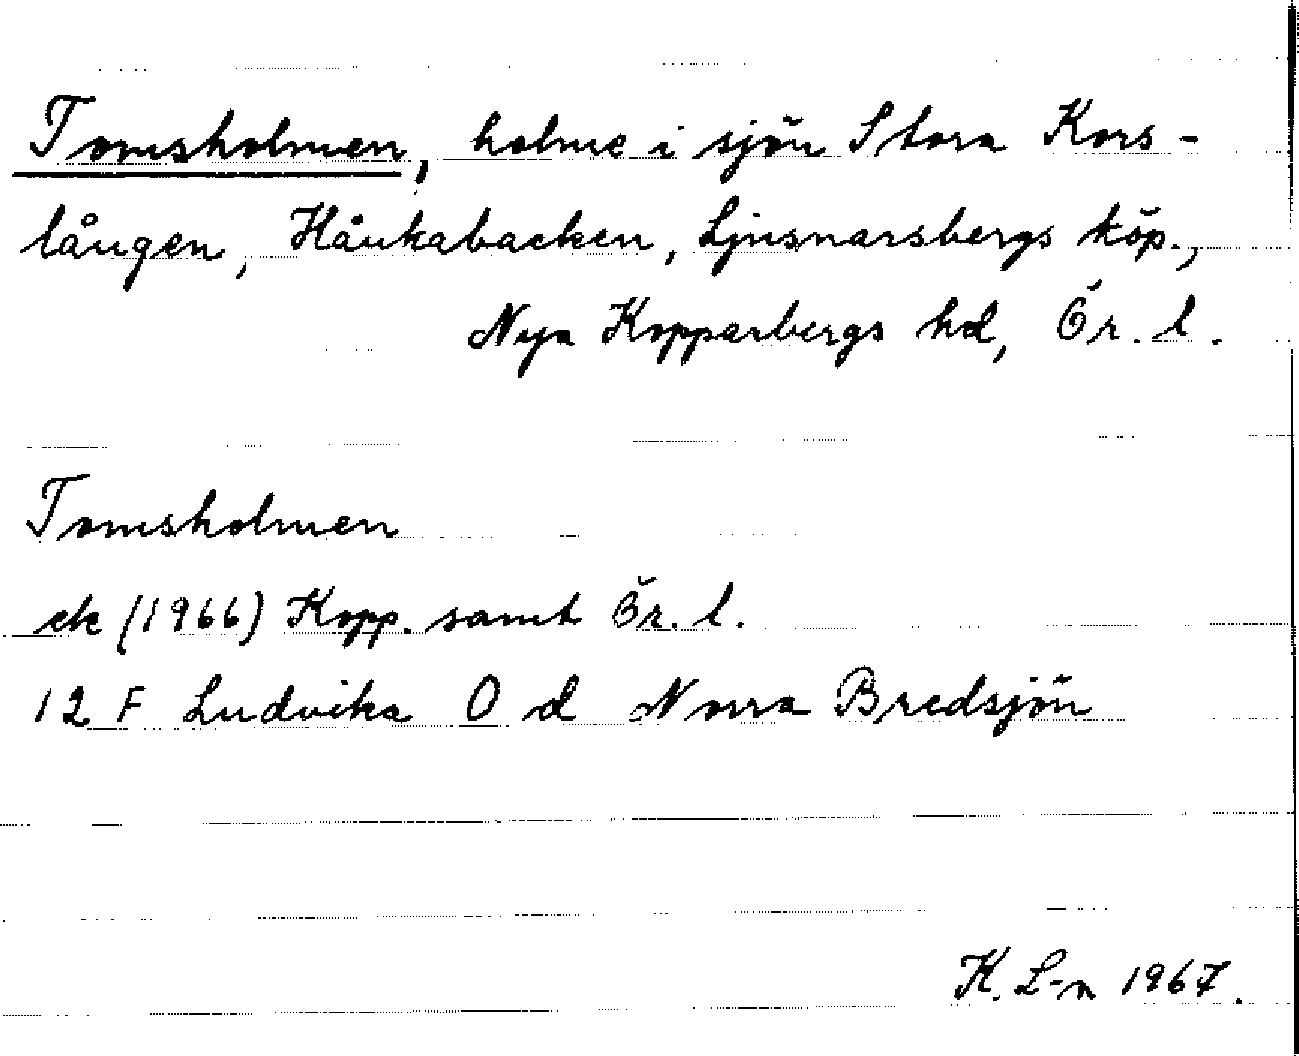 Tomsholmen, holme i sjön Stora Kors-
lången, Hånkabacken, Ljusnarsbergs köp.,
Nya Kopparbergs hd, Ör. l.
Tomsholmen
ek (1966) Kopp. samt Ör. l.
12 F Ludvika O d Norra Bredsjön
K. L-n 1967.